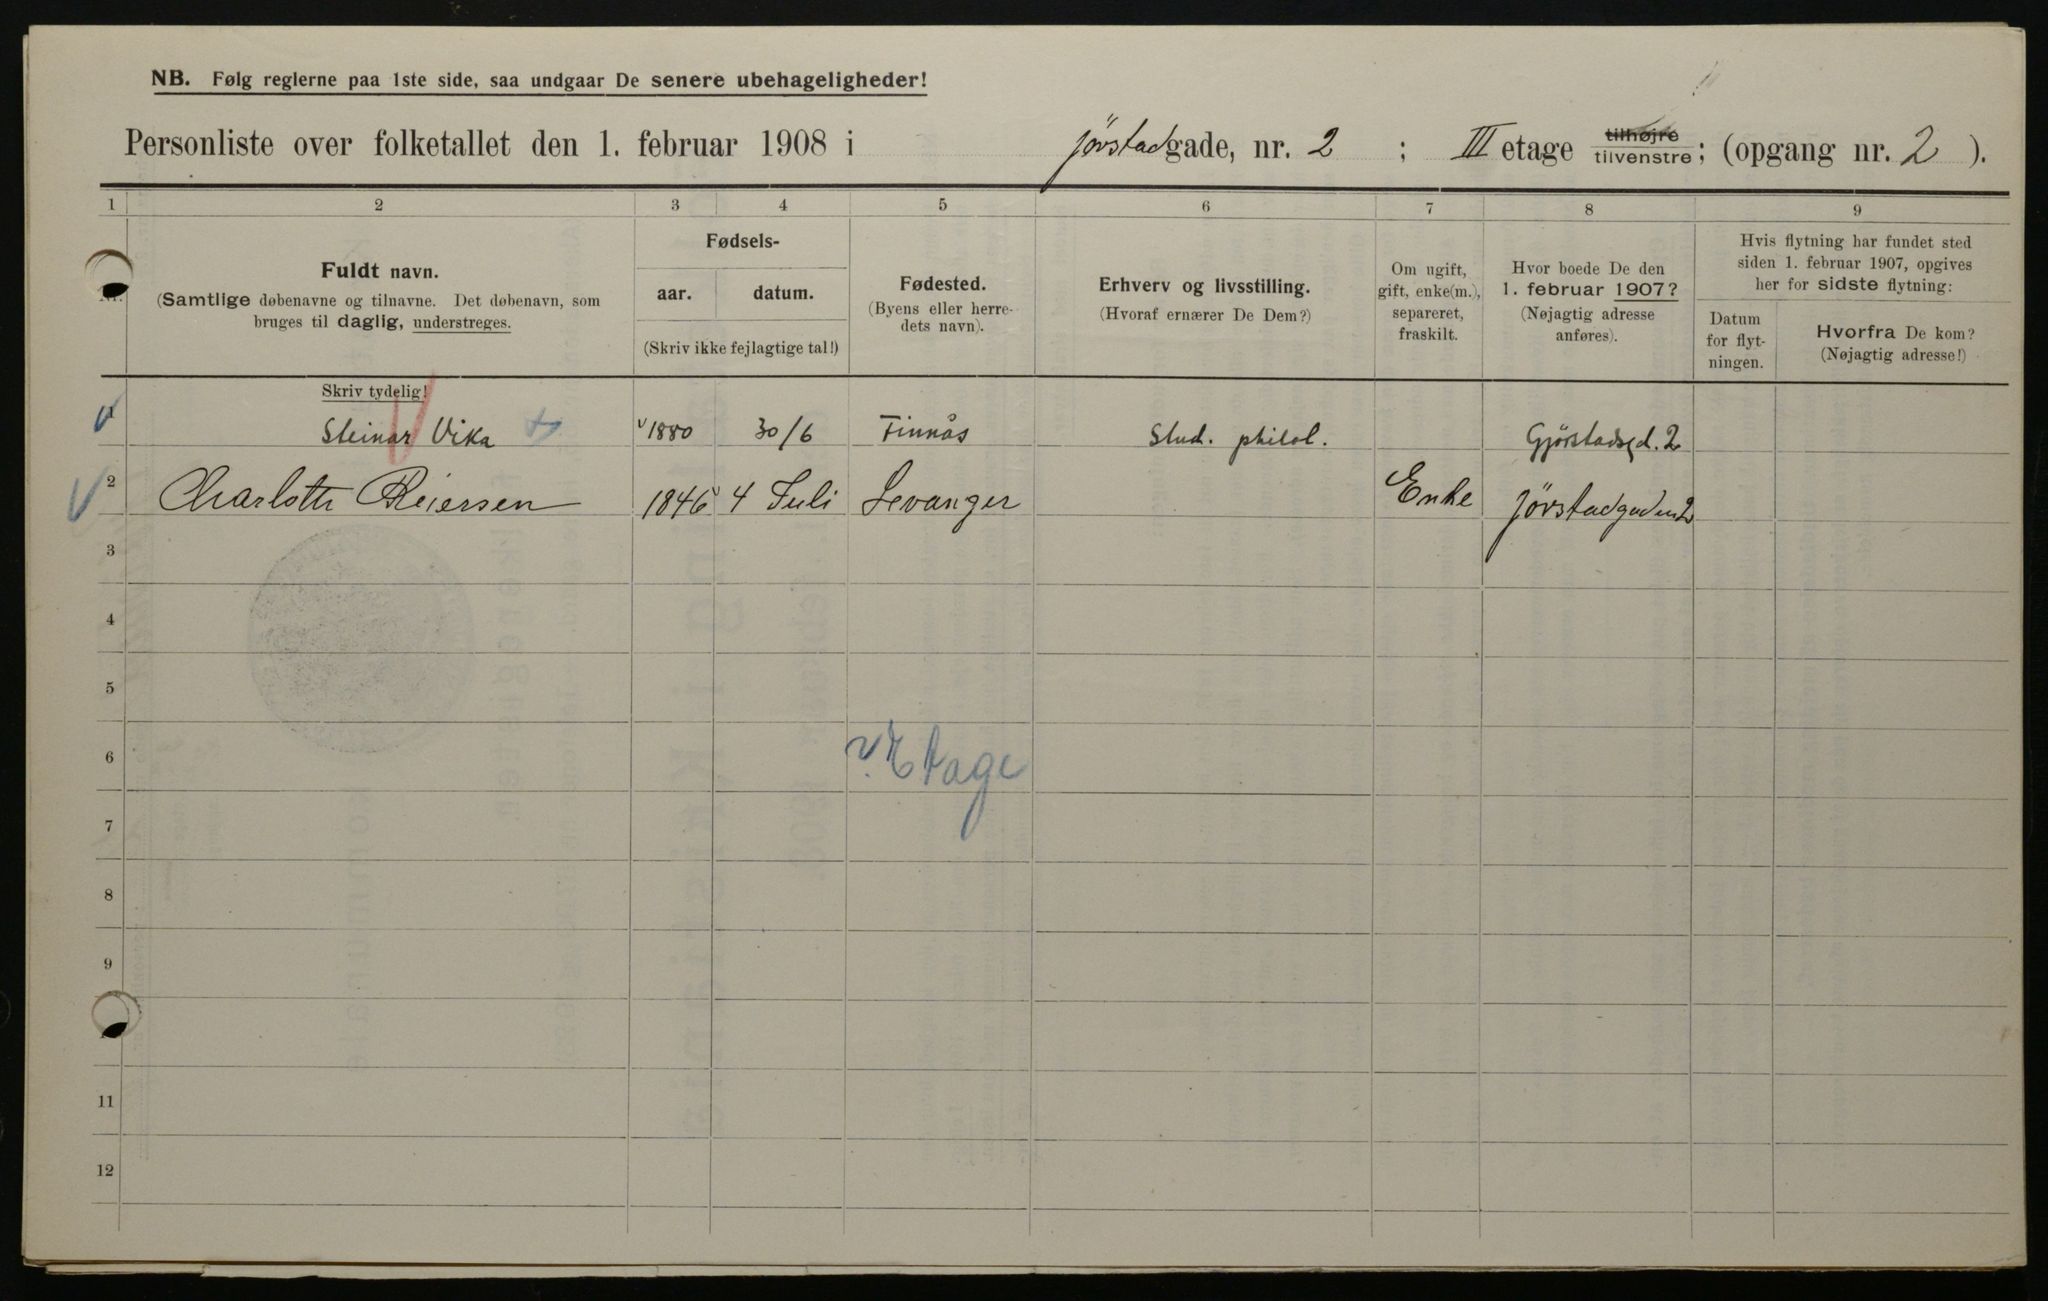 NB. Følg reglerne paa 1ste side, saa undgaar De senere ubehageligheder!
Personliste over folketallet den 1. februar 1908 i Jörstadgade, nr. 2 ; III etage tilhøjre tilvenstre; (opgang nr. 2 ).
1 2 3 4 5 6 7 8 9
Nr.
Fuldt navn.
(Samtlige døbenavne og tilnavne. Det døbenavn, som
bruges til daglig, understreges.
Skriv tydelig!
Fødsels-
aar. datum.
(Skriv ikke fejlagtige tal!)
Fødested.
(Byens eller herre-
dets navn).
Erhverv og livsstilling.
(Hvoraf ernærer De Dem?)
Om ugift,
gift, enke(m.),
separeret,
fraskilt.
Hvor boede De den
1. februar 1907?
(Nøjagtig adresse
anføres).
Hvis flytning har fundet sted
siden 1. februar 1907, opgives
her for sidste flytning:
Datum
for flyt-
ningen.
Hvorfra De kom?
(Nøjagtig adresse!)
1 Steinar Vika 1880 30/6 Finnås Stud. philol. Gjörstadsgd. 2
2 Charlotte Reiersen 1846 4 Juli Levanger Enke Jörstadgaden 2
3
4
5
6 v. Etage
7
8
9
11
12